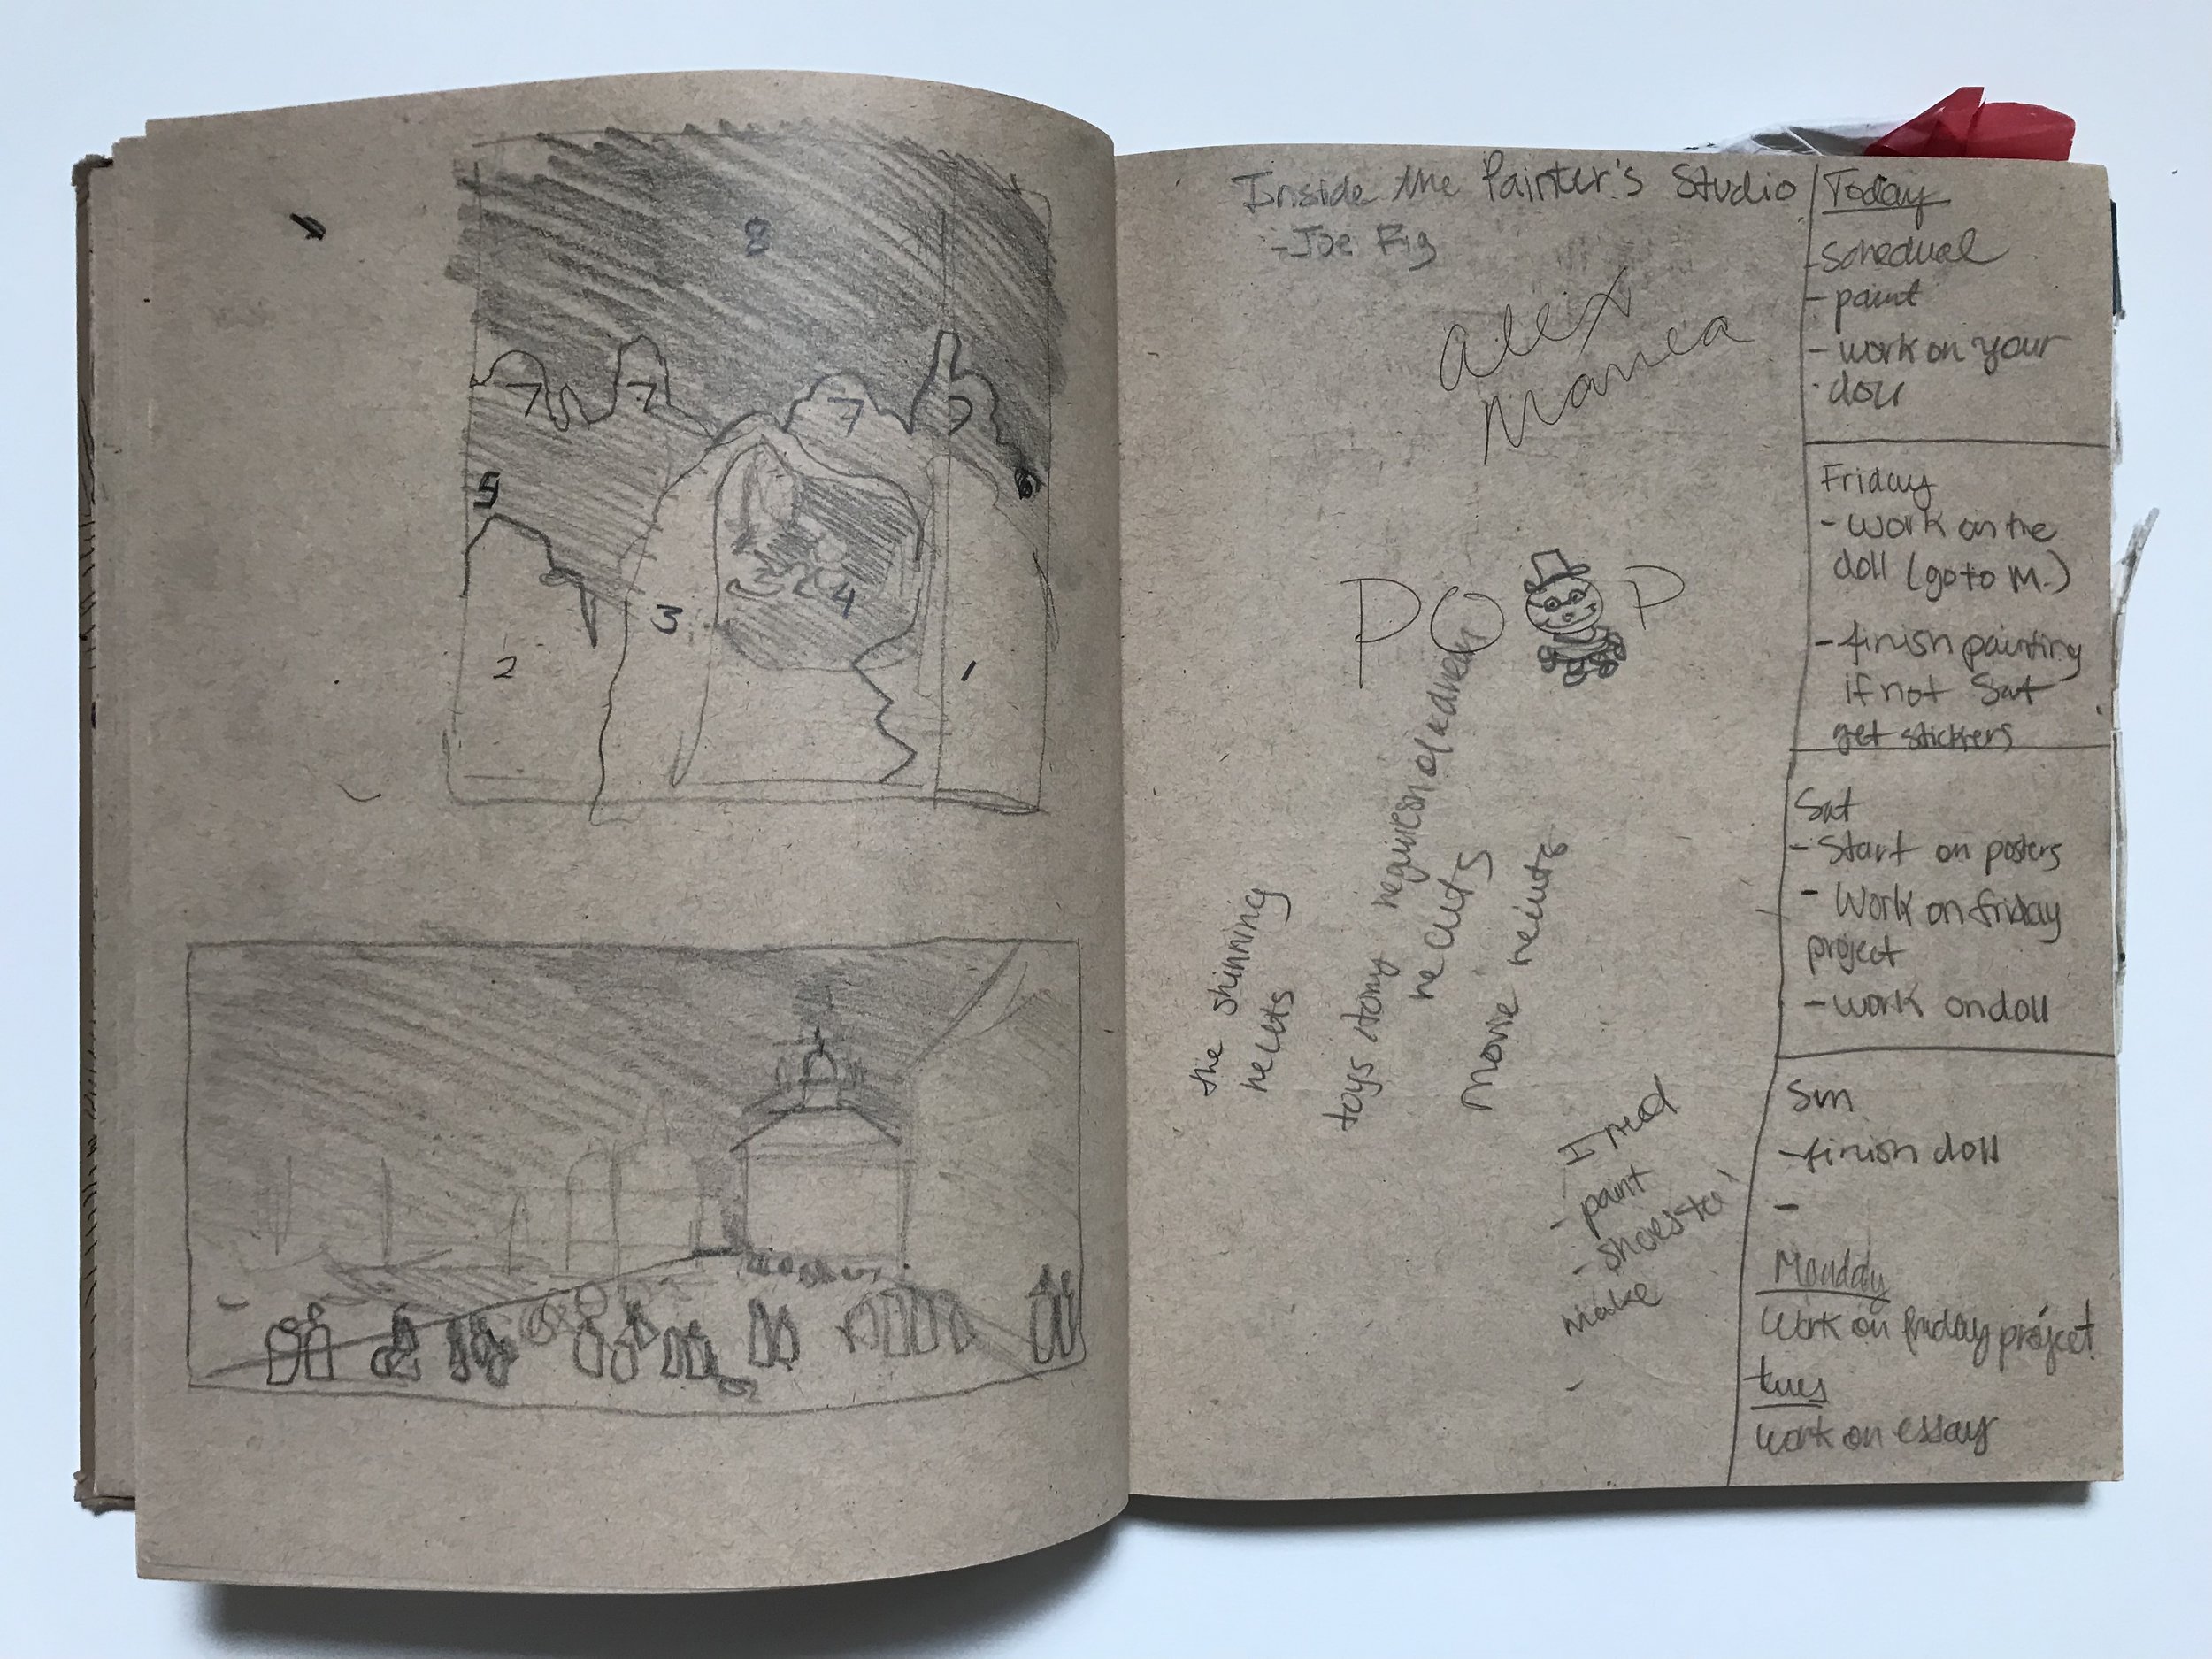 8
7
7
7
5
6
3
4
2
1
Inside the Painter's Studio
-Joe Fig
alex
manea
POP
the shinning
recuts
toys story requiem of a dream
recuts
movie recuts
I need
- paint
- shoes to
make
Today
-schedual
- paint
- work on your
doll
Friday
- work on the
doll (go to M.)
- finish painting
if not Sat
get stickers
Sat
- Start on posters
- Work on friday
project
- work on doll
Sun
- finish doll
-
Monday
Work on friday project
tues
work on essay